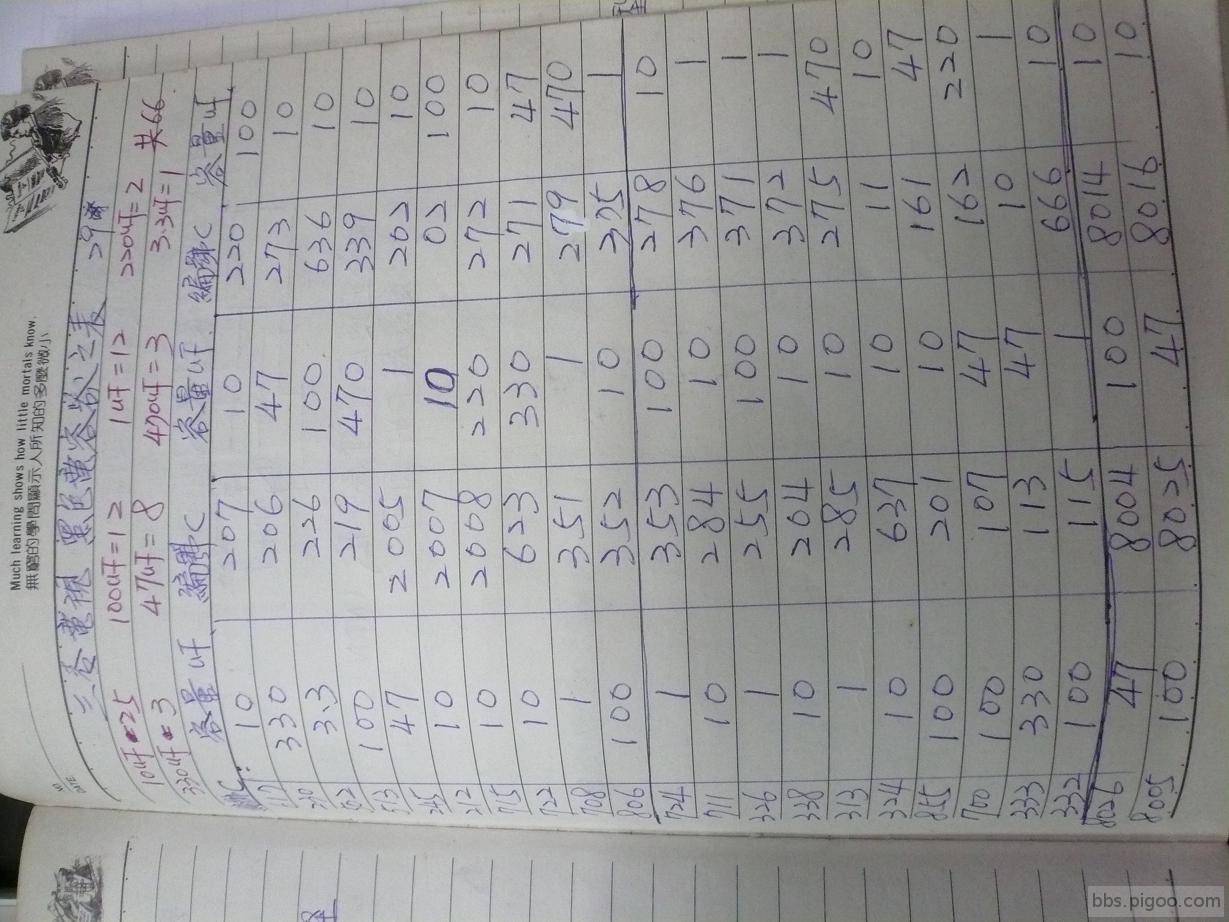 Much learning shows how little mortals know.
無窮的學問顯示人所知的多麼微小
NO
DATE
電視 黑色電容 之表 29
10uf 25 100uf=12 1uf=12 220uf=2
330uf 3 47uf=8 470uf=3 3.3uf=1 共66
編號C 容量uf 編號C 容量uf 編號C 容量uf
10 207 10 220 100
330 206 47 273 10
3.3 226 100 636 10
100 219 470 339 10
47 2005 1 202 10
10 2007 10 02 100
10 2008 220 272 10
10 623 330 271 47
708 1 351 1 279 470
806 100 352 10 325 1
724 1 353 100 278 10
711 10 284 10 376 1
326 1 255 100 371 1
338 10 204 10 372 1
313 1 285 10 275 470
324 10 637 10 11 10
855 100 201 10 161 47
700 100 107 47 162 220
333 330 113 47 10 1
332 100 115 1 666 10
8026 47 8004 100 8014 10
8005 100 8025 47 8016 10
bbs.pigoo.com